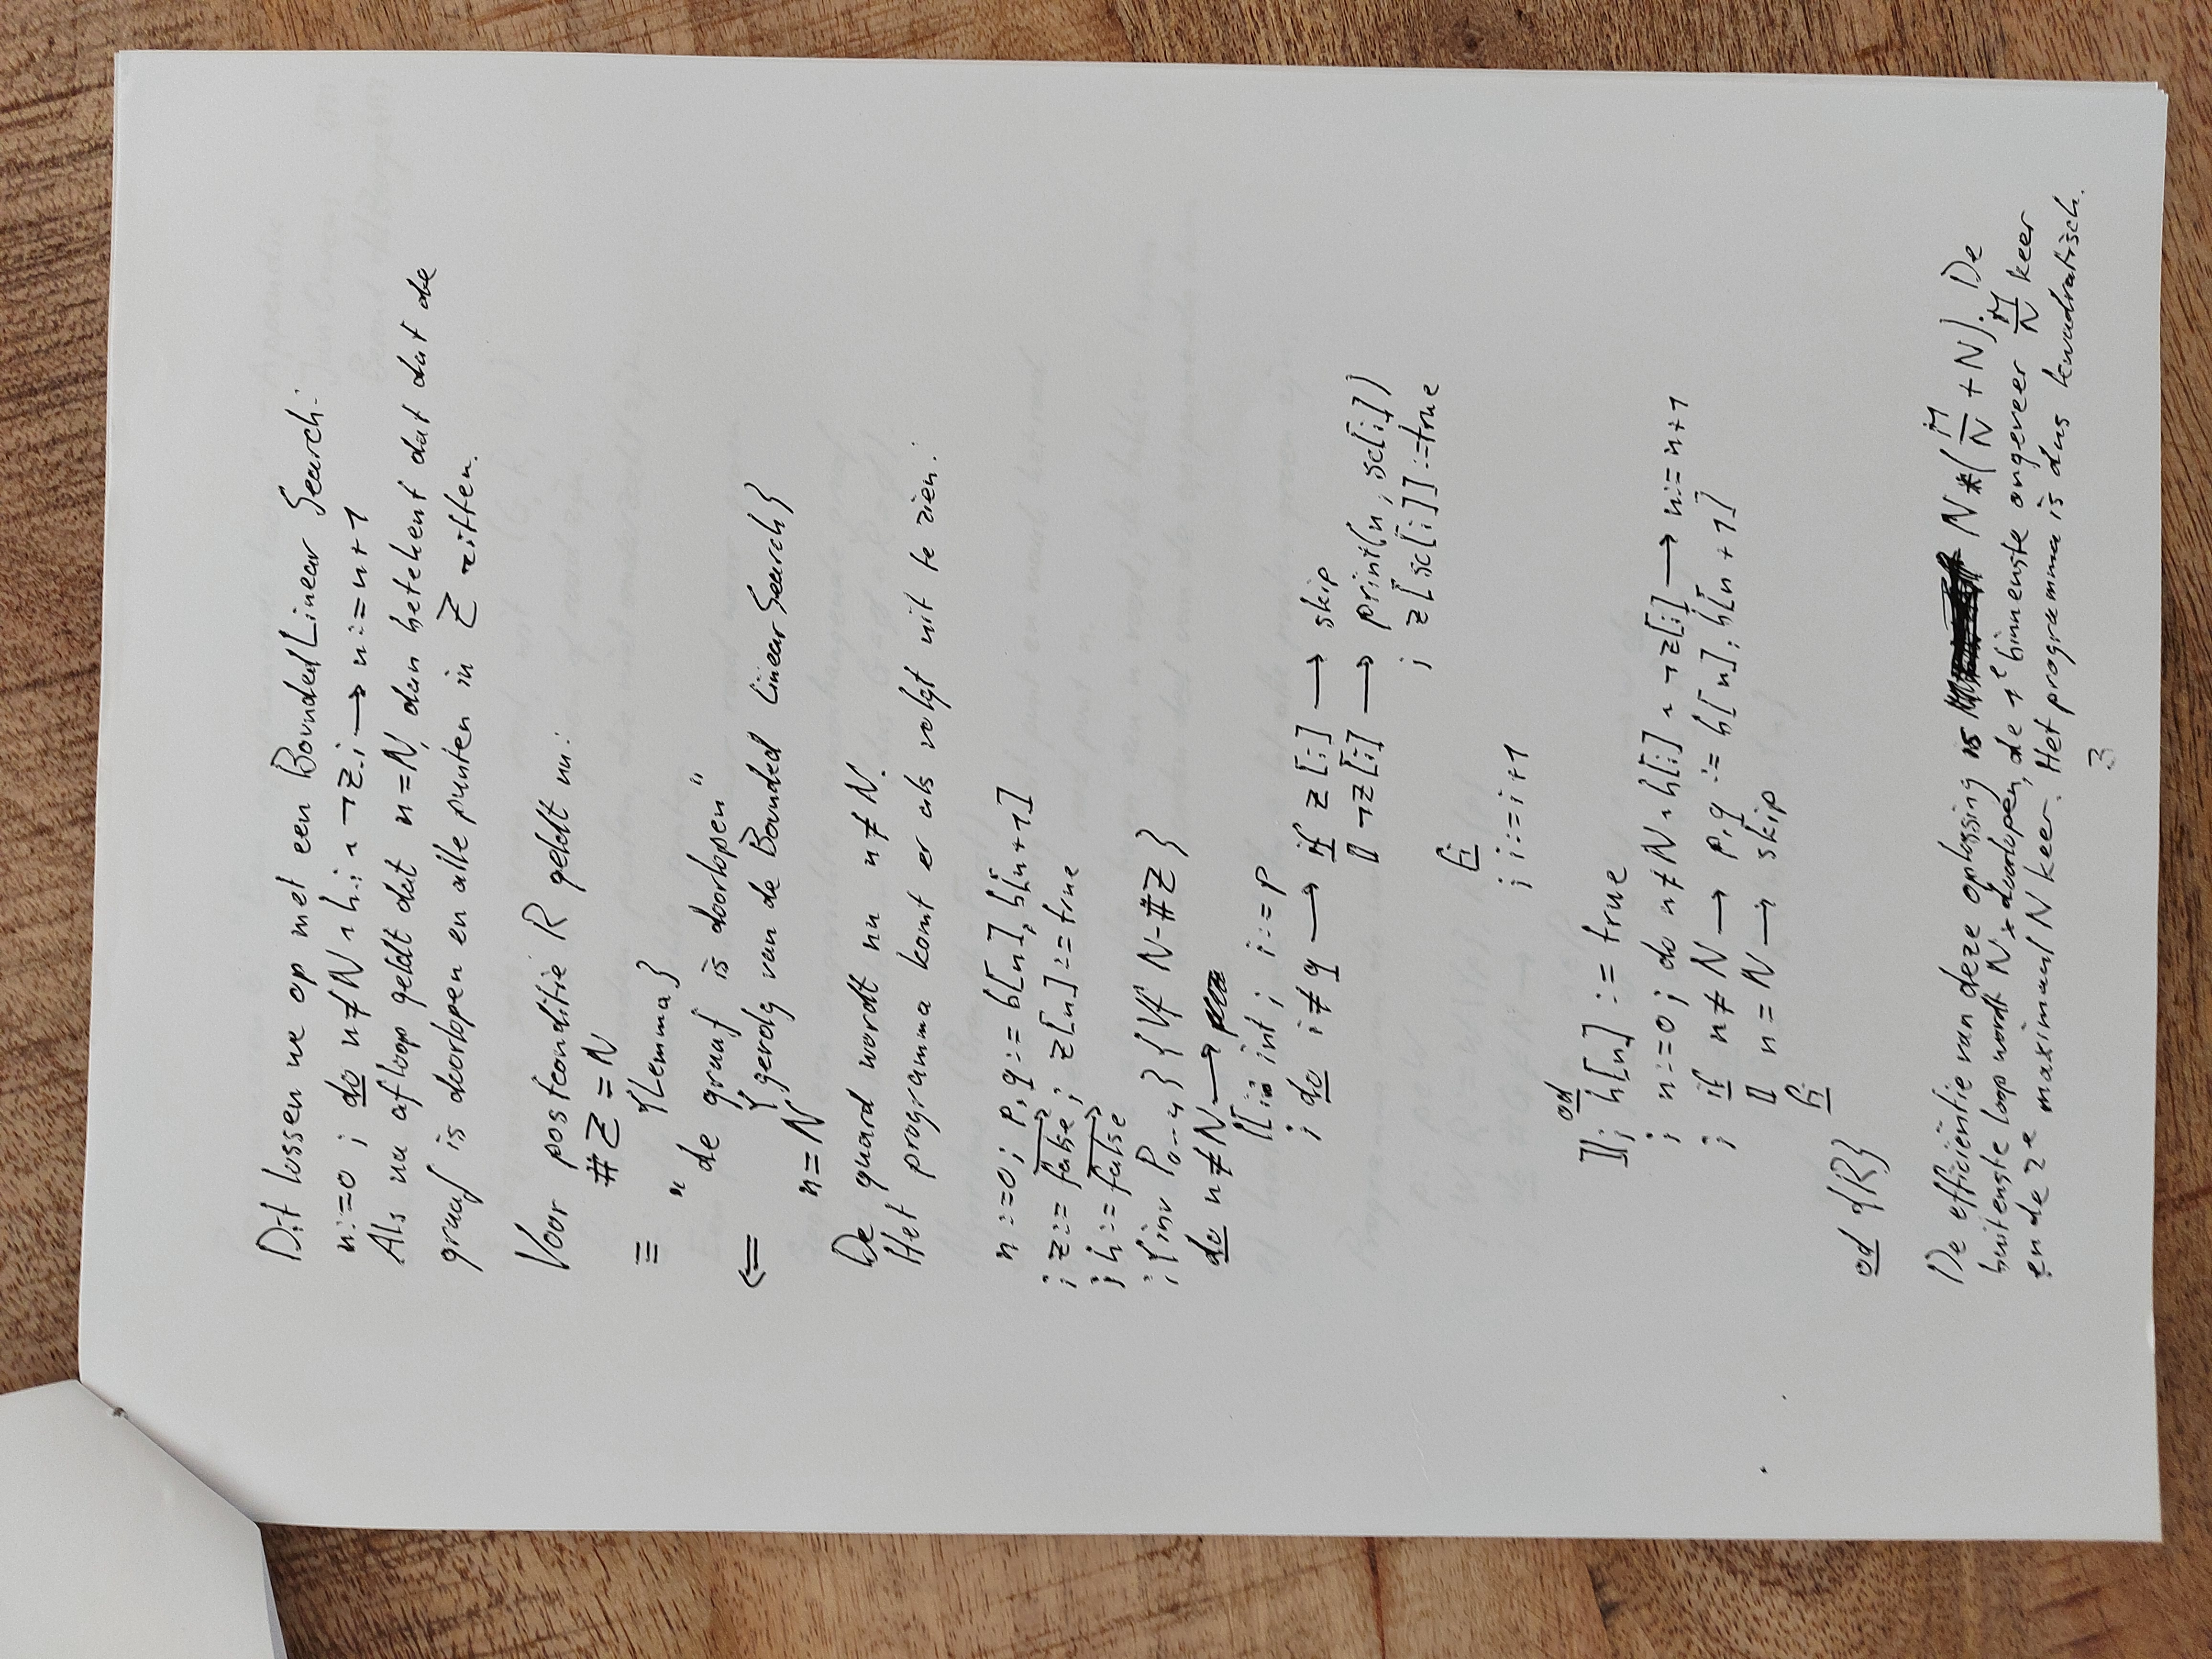 Dit lossen we op met een Bounded Linear Search:
n:=0 ; do n≠N ∧ h.i ∧ ¬z.i → n:=n+1
Als na afloop geldt dat n=N, dan betekent dat dat de
graaf is doorlopen en alle punten in Z zitten.
Voor postconditie R geldt nu:
#Z = N
≡ {Lemma}
"de graaf is doorlopen"
⇐ {gevolg van de Bounded Linear Search}
n=N
De guard wordt nu n≠N.
Het programma komt er als volgt uit te zien:
n:=0; p,q:= b[n], b[n+1]
; z:= false; z[n]:=true
; h:= false
;{inv P0-4} {Vf N-#Z}
do n≠N →
|[ i: int ; i:=p
; do i≠q → if z[i] → skip
[] ¬z[i] → print(n, sc[i])
; z[sc[i]]:=true
fi
; i:=i+1
od
]|; h[n] := true
; n:=0; do n≠N ∧ h[i] ∧ ¬z[i] → n:=n+1
; if n≠N → p,q := b[n], b[n+1]
[] n=N → skip
fi
od {R}
De efficiëntie van deze oplossing is N*(M/N + N). De
buitenste loop wordt N× doorlopen, de 1e binnenste ongeveer M/N keer
en de 2e maximaal N keer. Het programma is dus kwadratisch.
3